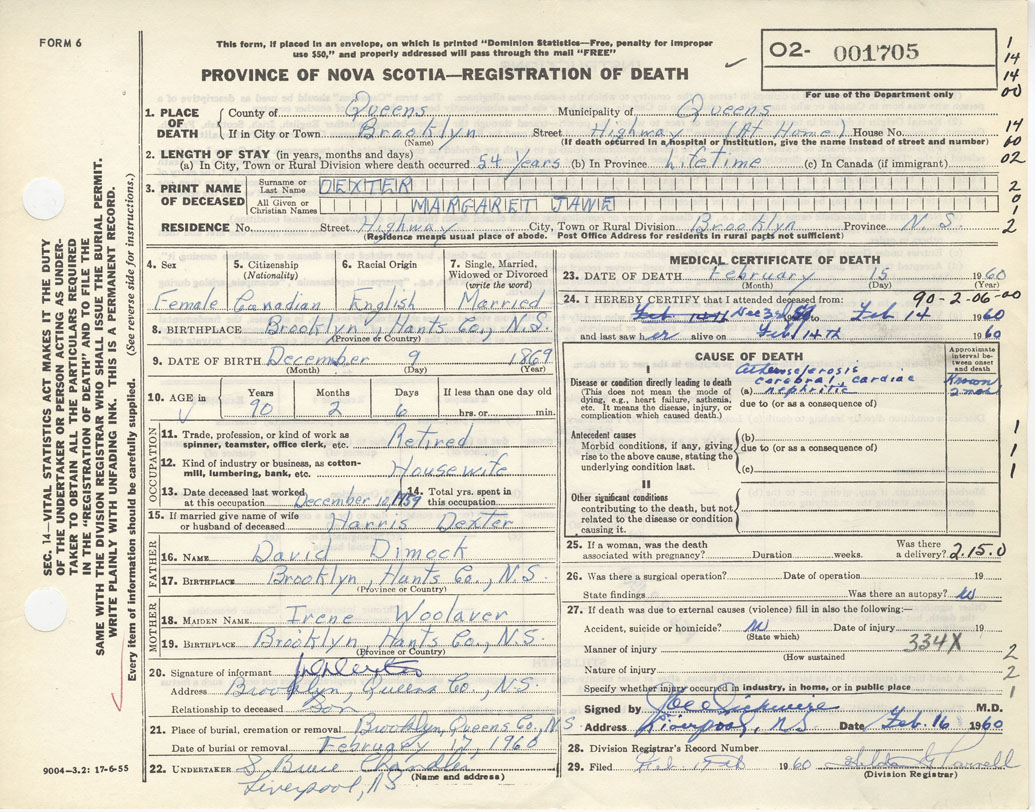 FORM 6
This form, if placed in an envelope, on which is printed "Dominion Statistics—Free, penalty for improper
use $50," and properly addressed will pass through the mail "FREE"
PROVINCE OF NOVA SCOTIA—REGISTRATION OF DEATH
O2- 001705
For use of the Department only
1
14
14
00
1. PLACE OF DEATH County of Queens Municipality of Queens
If in City or Town Brooklyn Street Highway (At Home) House No.
(Name) (If death occurred in a hospital or institution, give the name instead of street and number)
14
60
02
2. LENGTH OF STAY (in years, months and days)
(a) In City, Town or Rural Division where death occurred 54 years (b) In Province Lifetime (c) In Canada (if immigrant)
3. PRINT NAME OF DECEASED
Surname or Last Name DEXTER
All Given or Christian Names MARGARET JANE
2
0
1
2
RESIDENCE No. Street Highway City, Town or Rural Division Brooklyn Province N. S.
(Residence means usual place of abode. Post Office Address for residents in rural parts not sufficient)
4. Sex
Female
5. Citizenship
(Nationality)
Canadian
6. Racial Origin
English
7. Single, Married, Widowed or Divorced
(write the word)
Married
8. BIRTHPLACE Brooklyn, Hants Co., N.S.
(Province or Country)
9. DATE OF BIRTH December 9 1869
(Month) (Day) (Year)
10. AGE in Years 90 Months 2 Days 6 If less than one day old
hrs. or min.
OCCUPATION
11. Trade, profession, or kind of work as spinner, teamster, office clerk, etc. Retired
12. Kind of industry or business, as cotton-mill, lumbering, bank, etc. Housewife
13. Date deceased last worked at this occupation December 10, 1959 14. Total yrs. spent in this occupation
15. If married give name of wife or husband of deceased Harris Dexter
FATHER
16. NAME David Dimock
17. BIRTHPLACE Brooklyn, Hants Co., N.S.
(Province or Country)
MOTHER
18. MAIDEN NAME Irene Woolaver
19. BIRTHPLACE Brooklyn, Hants Co., N.S.
(Province or Country)
20. Signature of informant
Address Brooklyn, Queens Co., N.S.
Relationship to deceased Son
21. Place of burial, cremation or removal Brooklyn, Queens Co., N.S
Date of burial or removal February 17, 1960
22. UNDERTAKER S Bruce Chandler
(Name and address)
Liverpool, N.S.
MEDICAL CERTIFICATE OF DEATH
23. DATE OF DEATH February 15 1960
(Month) (Day) (Year)
24. I HEREBY CERTIFY that I attended deceased from: 90-2-06-00
to Feb 14 1960
and last saw her alive on Feb 14th 1960
CAUSE OF DEATH
Approximate interval between onset and death
I
Disease or condition directly leading to death
(This does not mean the mode of dying, e.g., heart failure, asthenia, etc. It means the disease, injury, or complication which caused death.)
cerebral, cardiac
(a) nephritic
due to (or as a consequence of)
Known
2 mos
Antecedent causes
Morbid conditions, if any, giving rise to the above cause, stating the underlying condition last.
(b)
due to (or as a consequence of)
(c)
1
1
1
II
Other significant conditions contributing to the death, but not related to the disease or condition causing it.
25. If a woman, was the death associated with pregnancy? Duration weeks. Was there a delivery? 2.15.0
26. Was there a surgical operation? Date of operation 19
State findings Was there an autopsy?
27. If death was due to external causes (violence) fill in also the following:—
Accident, suicide or homicide? Date of injury 19
(State which)
334X
Manner of injury 2
(How sustained)
Nature of injury 2
Specify whether injury occurred in industry, in home, or in public place 1
Signed by M.D.
Address Liverpool, N.S Date Feb. 16 1960
28. Division Registrar's Record Number
29. Filed 1960
(Division Registrar)
9004—3.2: 17-6-55
SEC. 14—VITAL STATISTICS ACT MAKES IT THE DUTY
OF THE UNDERTAKER OR PERSON ACTING AS UNDER-
TAKER TO OBTAIN ALL THE PARTICULARS REQUIRED
IN THE "REGISTRATION OF DEATH" AND TO FILE THE
SAME WITH THE DIVISION REGISTRAR WHO SHALL ISSUE THE BURIAL PERMIT.
WRITE PLAINLY WITH UNFADING INK. THIS IS A PERMANENT RECORD.
Every item of information should be carefully supplied. (See reverse side for instructions.)